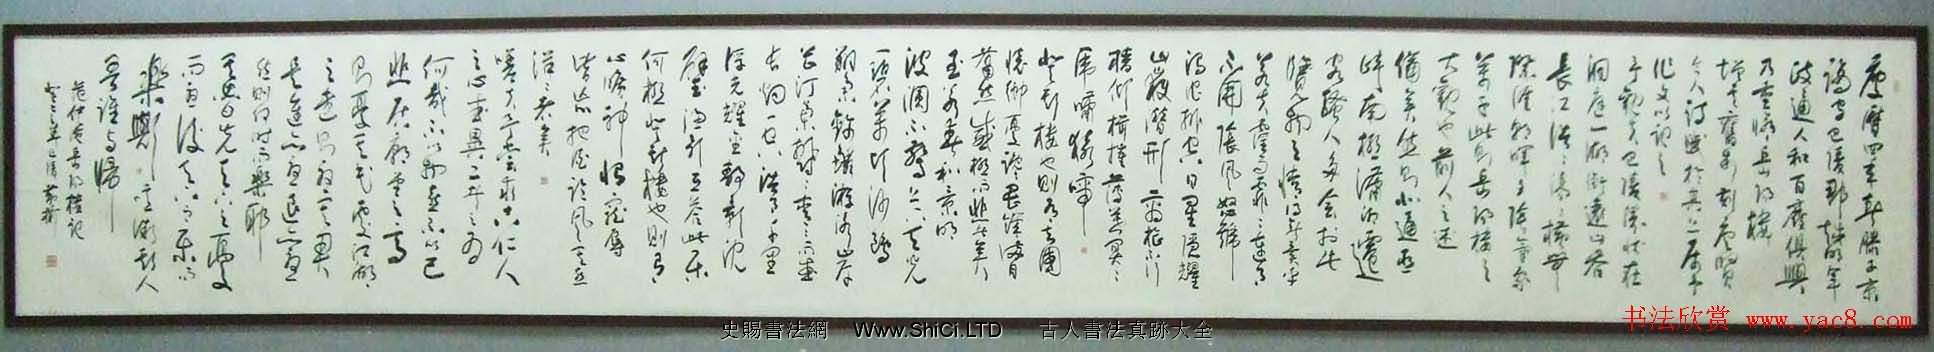 慶曆四年春滕子京
謫守巴陵郡越明年
政通人和百廢俱興
乃重修岳陽樓
增其舊制刻唐賢
今人詩賦於其上屬予
作文以記之
予觀夫巴陵勝狀在
洞庭一湖銜遠山吞
長江浩浩湯湯橫無
際涯朝暉夕陰氣象
萬千此則岳陽樓之
大觀也前人之述
備矣然則北通巫
峽南極瀟湘遷
客騷人多會於此
覽物之情得無異乎
若夫霪雨霏霏連月
不開陰風怒號
濁浪排空日星隱耀
山嶽潛形商旅不行
檣傾楫摧薄暮冥冥
虎嘯猿啼
登斯樓也則有去國
懷鄉憂讒畏譏滿目
蕭然感極而悲者矣
至若春和景明
波瀾不驚上下天光
一碧萬頃沙鷗
翔集錦鱗游泳岸
芷汀蘭郁郁青青而或
長煙一空皓月千里
浮光耀金靜影沉
璧漁歌互答此樂
何極登斯樓也則有
心曠神怡寵辱
皆忘把酒臨風其喜
洋洋者矣
嗟夫予嘗求古仁人
之心或異二者之為
何哉不以物喜不以己
悲居廟堂之高
則憂其民處江湖
之遠則憂其君
是進亦憂退亦憂
然則何時而樂耶
其必曰先天下之憂
而憂後天下之樂而
樂歟噫微斯人
吾誰與歸
范仲淹岳陽樓記
史賜書法網 Www.ShiCi.LTD 古人書法真跡大全
书法欣赏 www.yac8.com